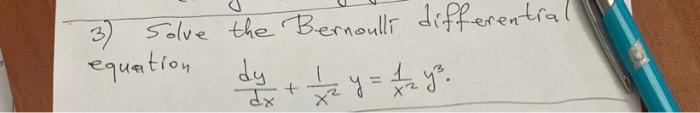 3) Solve the Bernoulli differential
equation dy/dx + 1/x² y = 1/x² y³.